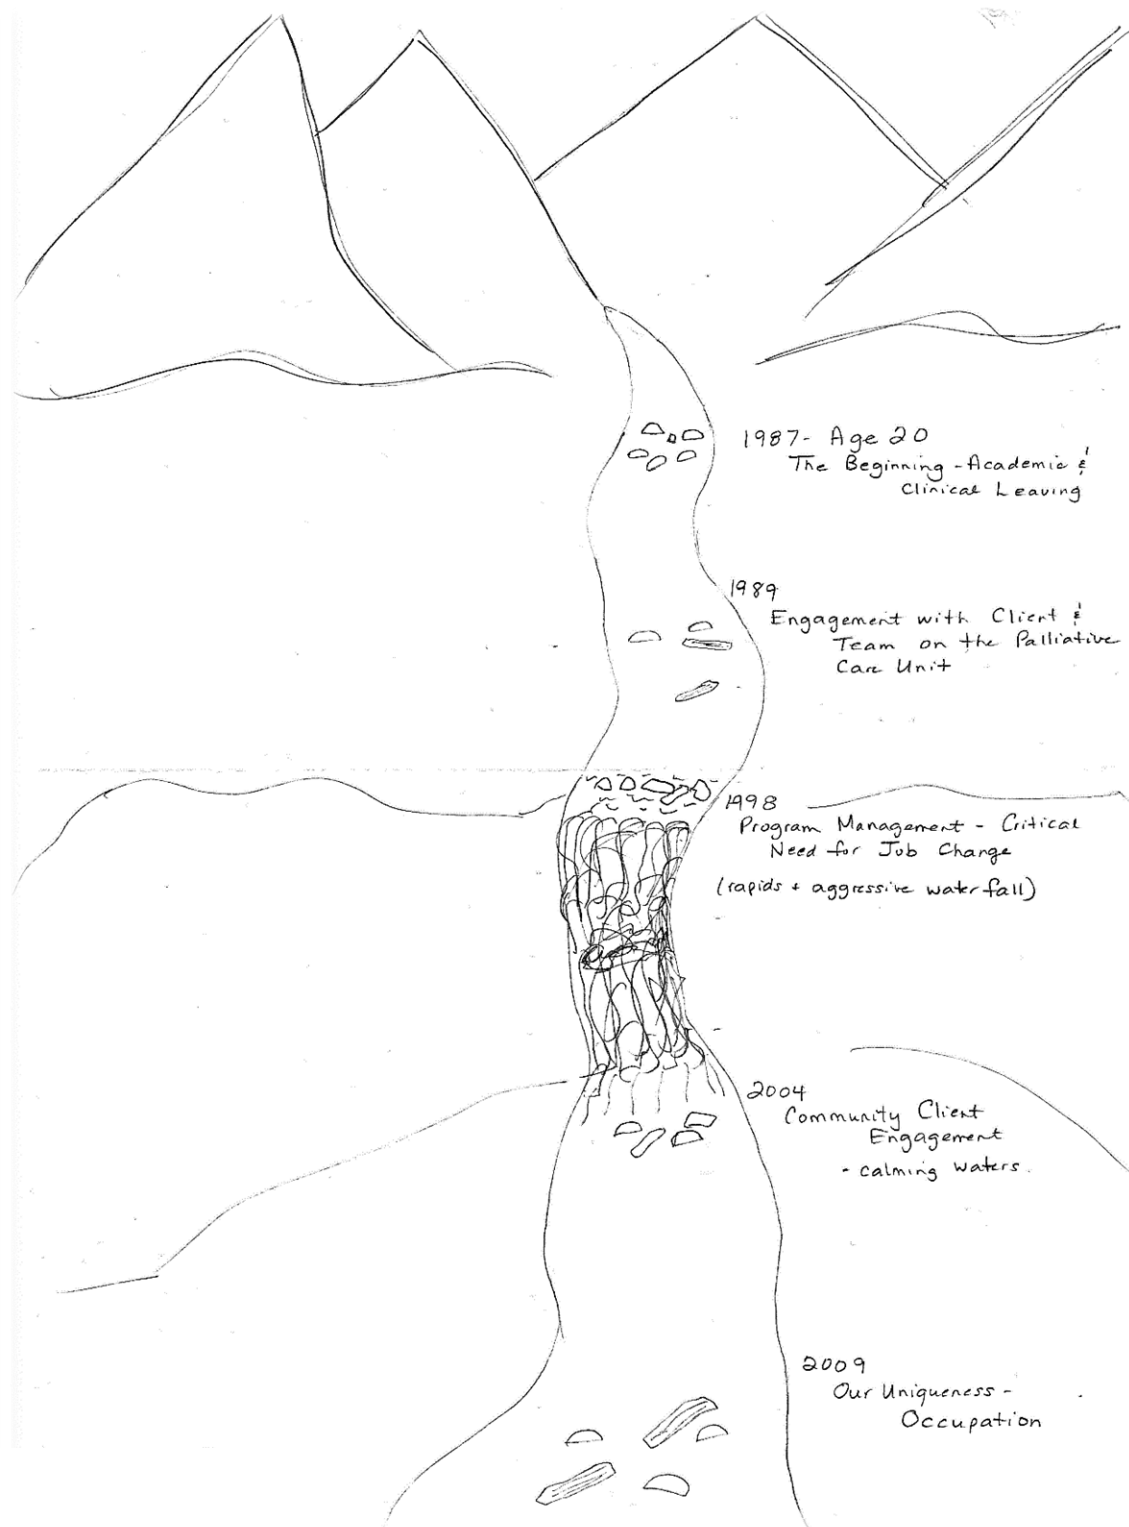 1987- Age 20
The Beginning - Academic &
Clinical Leaving
1989
Engagement with Client &
Team on the Palliative
Care Unit
1998
Program Management - Critical
Need for Job Change
(rapids + aggressive waterfall)
2004
Community Client
Engagement
- calming waters.
2009
Our Uniqueness -
Occupation